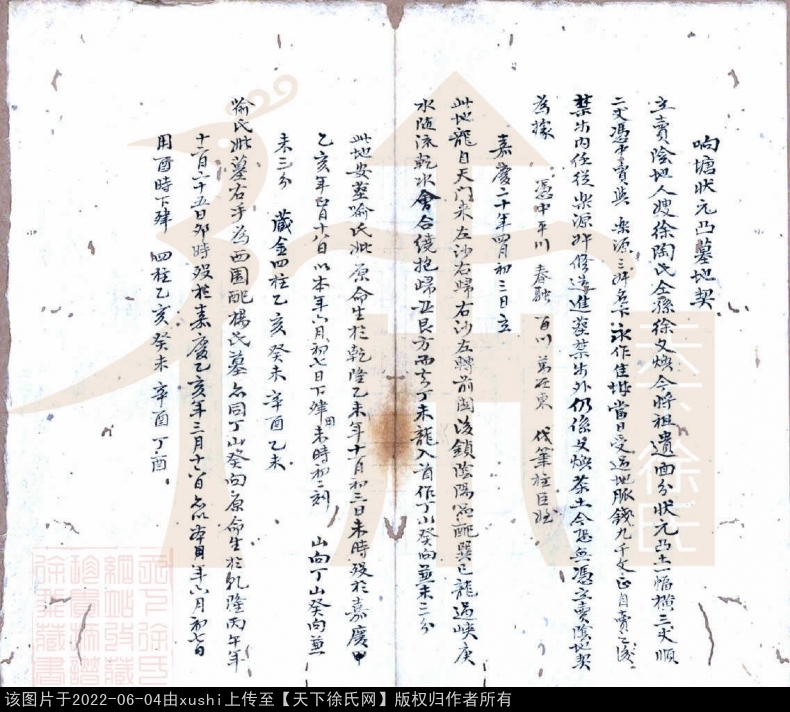 响塘狀元凸墓地契
立賣陰地人嫂徐陶氏仝孫徐文煥今將祖遺面分狀元凸土一幅橫三丈順
二丈憑中賣與 樂源三叔名下永作佳城當日受過地脈錢九千文正自賣之後
禁步內任從樂源叔修造進塟禁步外仍係文煥茶土今恐無憑立賣陰地契
為據 憑中平川 春融 百川 萬 東 代筆柱臣
嘉慶二十年四月初三日立
此地龍自天門来左沙右歸右沙左轉前関後鎖陰陽 配巽巳龍過峡庚
水随流乾水會合繞抱歸丑艮方而去丁未龍入首作丁山癸向兼未三分
此地安塟喻氏妣原命生於乾隆乙未年十一月初三日未時殁於嘉慶
乙亥年 月十八日以本年六月初七日下肂用未時初二刻 山向丁山癸向兼
未三分 藏金四柱乙亥癸未辛酉乙未
喻氏妣墓右手為西園配楊氏墓亦同丁山癸向原命生於乾隆丙午年
十一月二十五日卯時殁於嘉慶乙亥年三月十 日亦以本年六月初七日
用酉時下肂 四柱乙亥癸未辛酉丁酉
天下徐氏
该图片于2022-06-04由xushi上传至【天下徐氏网】版权归作者所有